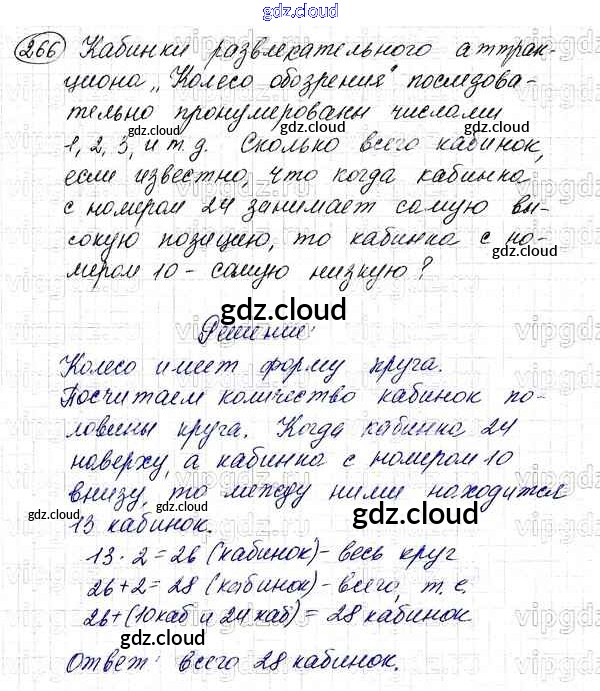 gdz.cloud
266 Кабинки развлекательного аттрак-
циона „Колесо обозрения" последова-
тельно пронумерованы числами
gdz.cloud gdz.cloud
1, 2, 3, и т.д. Сколько всего кабинок,
если известно, что когда кабинка
с номером 24 занимает самую вы-
сокую позицию, то кабинка с но-
мером 10 - самую низкую?
gdz.cloud
Решение:
Колесо имеет форму круга.
Посчитаем количество кабинок по-
ловины круга. Когда кабинка 24
наверху, а кабинка с номером 10
внизу, то между ними находится
gdz.cloud gdz.cloud
13 кабинок.
13 · 2 = 26 (кабинок) - весь круг
26 + 2 = 28 (кабинок) - всего, т.е.
26 + (10 каб и 24 каб) = 28 кабинок
gdz.cloud
Ответ: всего 28 кабинок.